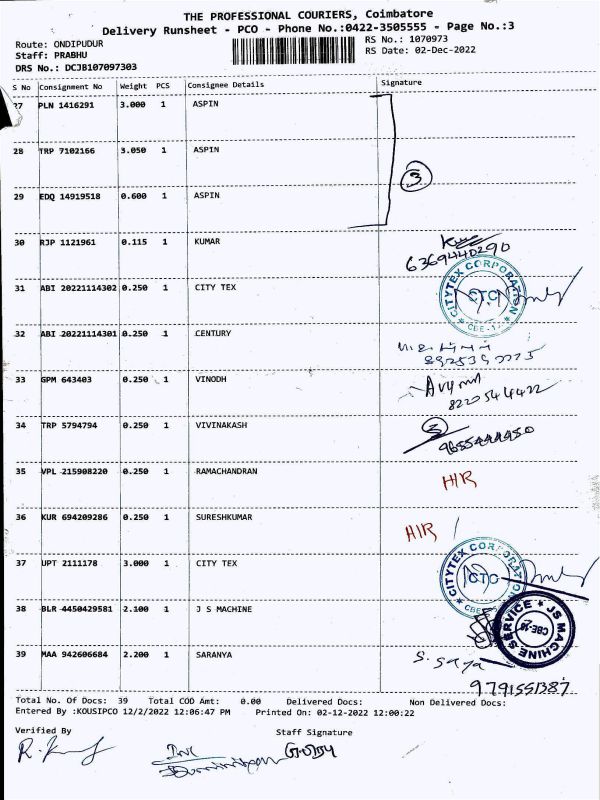 THE PROFESSIONAL COURIERS, Coimbatore
Delivery Runsheet - PCO - Phone No.:0422-3505555 - Page No.:3
Route: ONDIPUDUR
RS No.: 1070973
Staff: PRABHU
RS Date: 02-Dec-2022
DRS No.: DCJB107097303
S No Consignment No Weight PCS Consignee Details Signature
27 PLN 1416291 3.000 1 ASPIN
28 TRP 7102166 3.050 1 ASPIN
3
29 EDQ 14919518 0.600 1 ASPIN
30 RJP 1121961 0.115 1 KUMAR
6369440290
31 ABI 20221114302 0.250 1 CITY TEX
CITYTEX CORPORATION
CTC
32 ABI 20221114301 0.250 1 CENTURY
33 GPM 643403 0.250 1 VINODH
8220544422
34 TRP 5794794 0.250 1 VIVINAKASH
3
9655444450
35 VPL 215908220 0.250 1 RAMACHANDRAN
H/R
36 KUR 694209286 0.250 1 SURESHKUMAR
H/R
37 UPT 2111178 3.000 1 CITY TEX
CITYTEX CORPORATION
CTC
38 BLR 4450429581 2.100 1 J S MACHINE
JS MACHINE SERVICE
39 MAA 942606684 2.200 1 SARANYA
9791551387
Total No. Of Docs: 39 Total COD Amt: 0.00 Delivered Docs: Non Delivered Docs:
Entered By :KOUSIPCO 12/2/2022 12:06:47 PM Printed On: 02-12-2022 12:00:22
Verified By Staff Signature